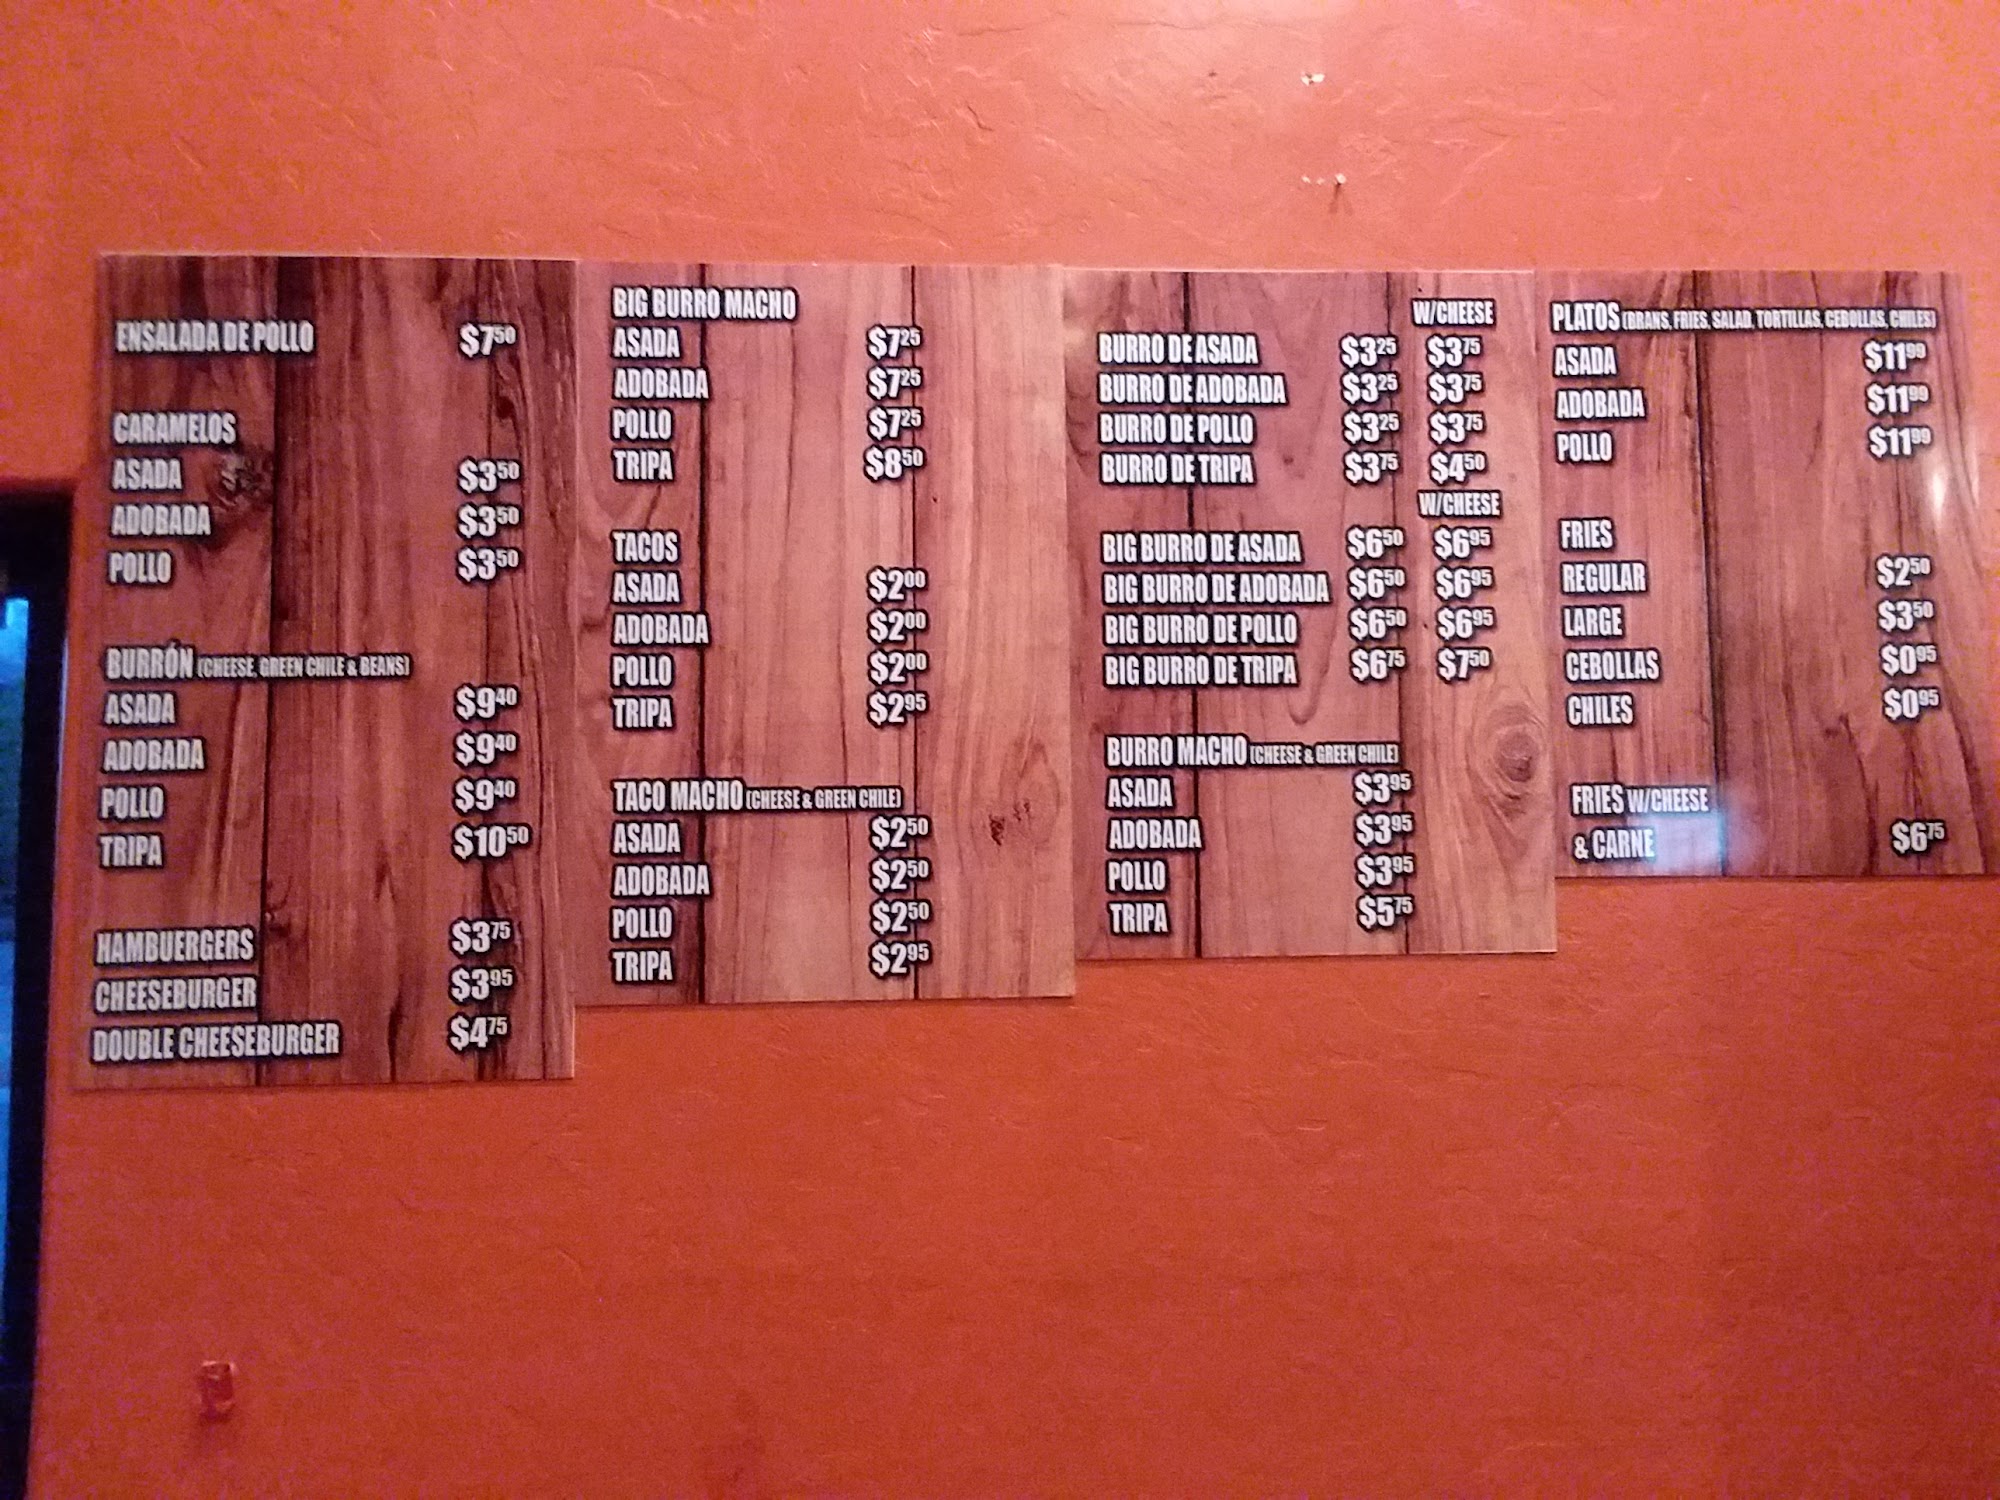 ENSALADA DE POLLO $7.50
CARAMELOS
ASADA $3.50
ADOBADA $3.50
POLLO $3.50
BURRÓN (CHEESE, GREEN CHILE & BEANS)
ASADA $9.40
ADOBADA $9.40
POLLO $9.40
TRIPA $10.50
HAMBUERGERS $3.75
CHEESEBURGER $3.95
DOUBLE CHEESEBURGER $4.75
BIG BURRO MACHO
ASADA $7.25
ADOBADA $7.25
POLLO $7.25
TRIPA $8.50
TACOS
ASADA $2.00
ADOBADA $2.00
POLLO $2.00
TRIPA $2.95
TACO MACHO (CHEESE & GREEN CHILE)
ASADA $2.50
ADOBADA $2.50
POLLO $2.50
TRIPA $2.95
W/CHEESE
BURRO DE ASADA $3.25 $3.75
BURRO DE ADOBADA $3.25 $3.75
BURRO DE POLLO $3.25 $3.75
BURRO DE TRIPA $3.75 $4.50
W/CHEESE
BIG BURRO DE ASADA $6.50 $6.95
BIG BURRO DE ADOBADA $6.50 $6.95
BIG BURRO DE POLLO $6.50 $6.95
BIG BURRO DE TRIPA $6.75 $7.50
BURRO MACHO (CHEESE & GREEN CHILE)
ASADA $3.95
ADOBADA $3.95
POLLO $3.95
TRIPA $5.75
PLATOS (BRANS, FRIES, SALAD, TORTILLAS, CEBOLLAS, CHILES)
ASADA $11.99
ADOBADA $11.99
POLLO $11.99
FRIES
REGULAR $2.50
LARGE $3.50
CEBOLLAS $0.95
CHILES $0.95
FRIES W/CHEESE
& CARNE $6.75